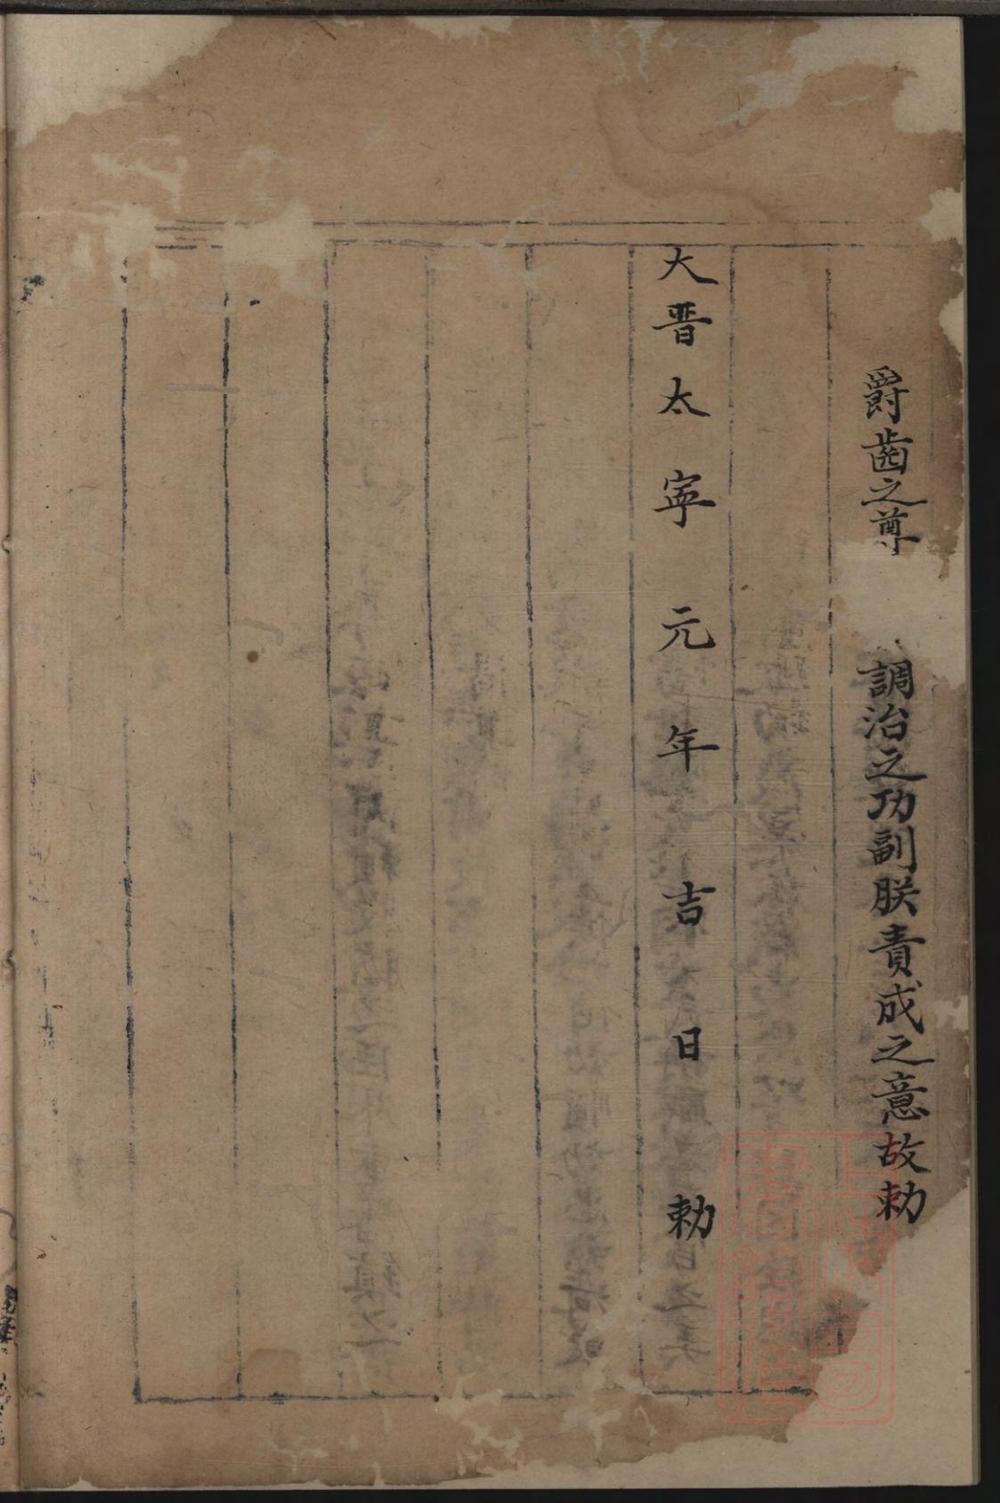 爵齒之尊 調治之功副朕責成之意故勅
大晋太寜元年吉日勅